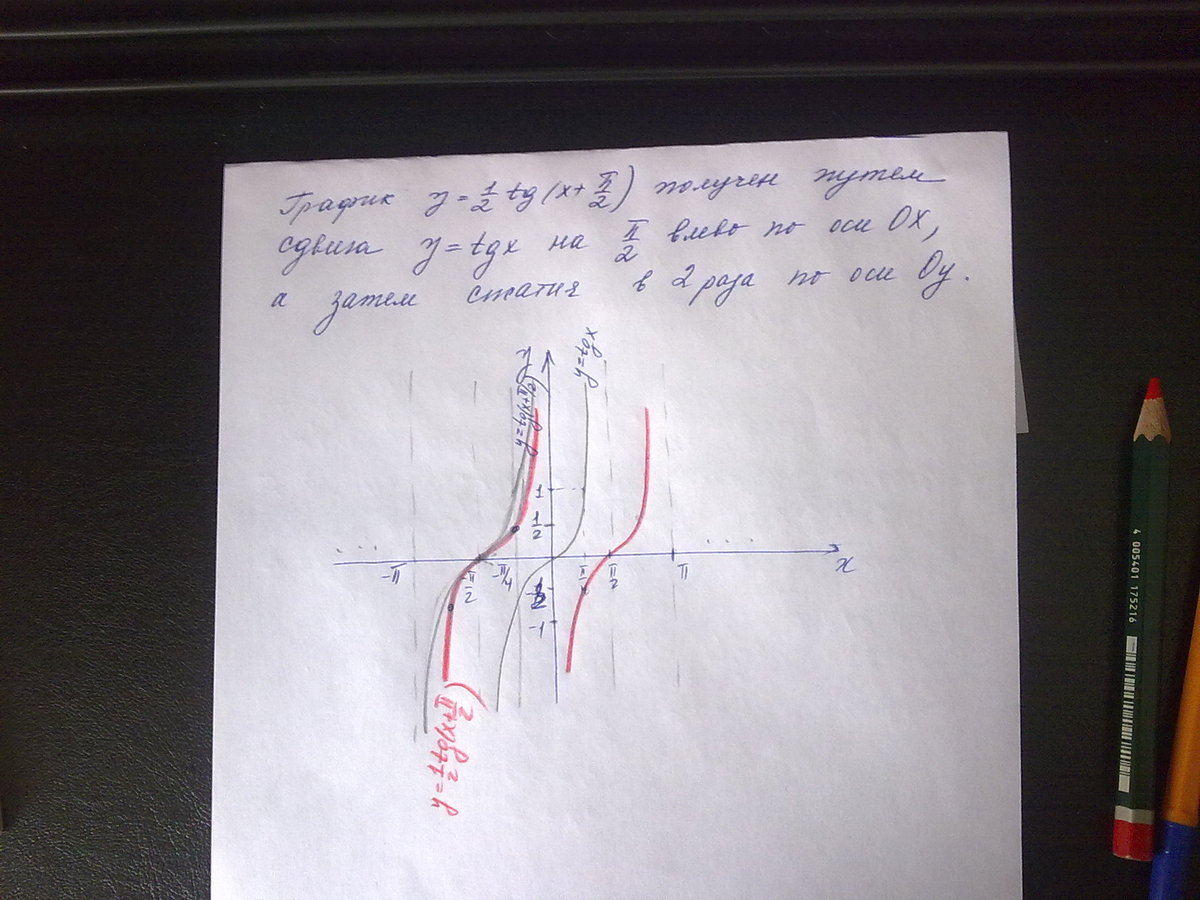 График y = 1/2 tg(x + π/2) получен путем
сдвига y = tgx на π/2 влево по оси OX,
а затем сжатия в 2 раза по оси Oy.
y
y=tg(x+π/2)
y=tgx
1
1/2
-π
-π/2
-π/4
π/4
π/2
π
x
-1
y=1/2 tg(x+π/2)
4 005401 175216